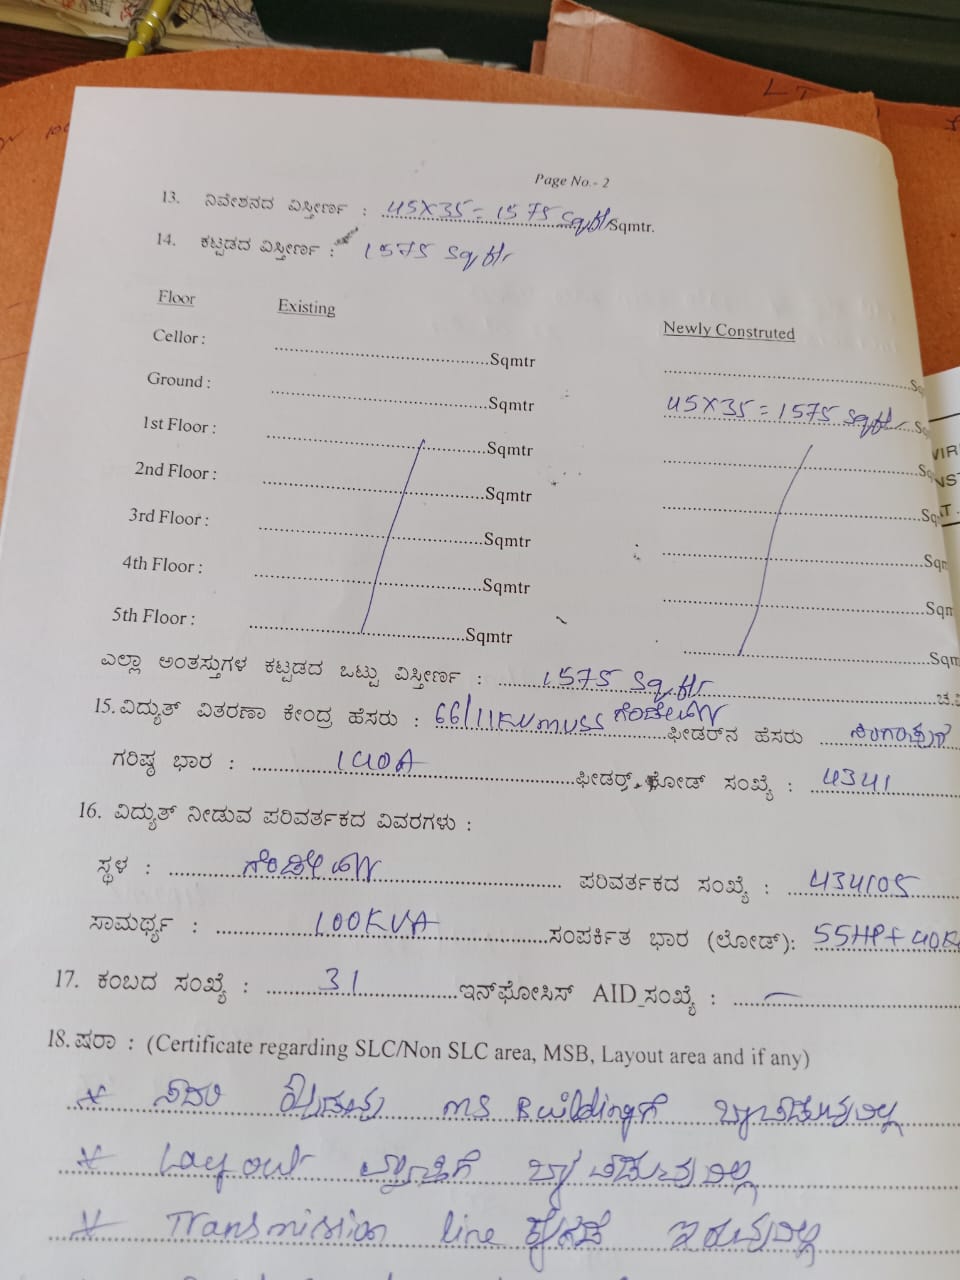 Page No.- 2
13. ನಿವೇಶನದ ವಿಸ್ತೀರ್ಣ : 45X35 = 1575 Sqftr Sqmtr.
14. ಕಟ್ಟಡದ ವಿಸ್ತೀರ್ಣ : 1575 Sqftr
Floor Existing Newly Construted
Cellor : Sqmtr
Ground : Sqmtr 45X35 = 1575 Sqftr
1st Floor : Sqmtr
2nd Floor : Sqmtr
3rd Floor : Sqmtr
4th Floor : Sqmtr
5th Floor : Sqmtr
ಎಲ್ಲಾ ಅಂತಸ್ತುಗಳ ಕಟ್ಟಡದ ಒಟ್ಟು ವಿಸ್ತೀರ್ಣ : 1575 Sq.ftr
15. ವಿದ್ಯುತ್ ವಿತರಣಾ ಕೇಂದ್ರ ಹೆಸರು : 66/11KV MUSS ಫೀಡರ್‌ನ ಹೆಸರು
ಗರಿಷ್ಠ ಭಾರ : 140A ಫೀಡರ್ರ್ ಕೋಡ್ ಸಂಖ್ಯೆ : 4341
16. ವಿದ್ಯುತ್ ನೀಡುವ ಪರಿವರ್ತಕದ ವಿವರಗಳು :
ಸ್ಥಳ : ಪರಿವರ್ತಕದ ಸಂಖ್ಯೆ : 434105
ಸಾಮರ್ಥ್ಯ : 100KVA ಸಂಪರ್ಕಿತ ಭಾರ (ಲೋಡ್): 55HP+40K
17. ಕಂಬದ ಸಂಖ್ಯೆ : 31 ಇನ್‌ಫೋಸಿಸ್ AID ಸಂಖ್ಯೆ :
18. ಷರಾ : (Certificate regarding SLC/Non SLC area, MSB, Layout area and if any)
* ಸದರಿ MS Buildingಗೆ ಒಳಪಡುವುದಿಲ್ಲ
* Layout ವ್ಯಾಪ್ತಿಗೆ ಒಳಪಡುವುದಿಲ್ಲ
* Transmission line ಇರುವುದಿಲ್ಲ